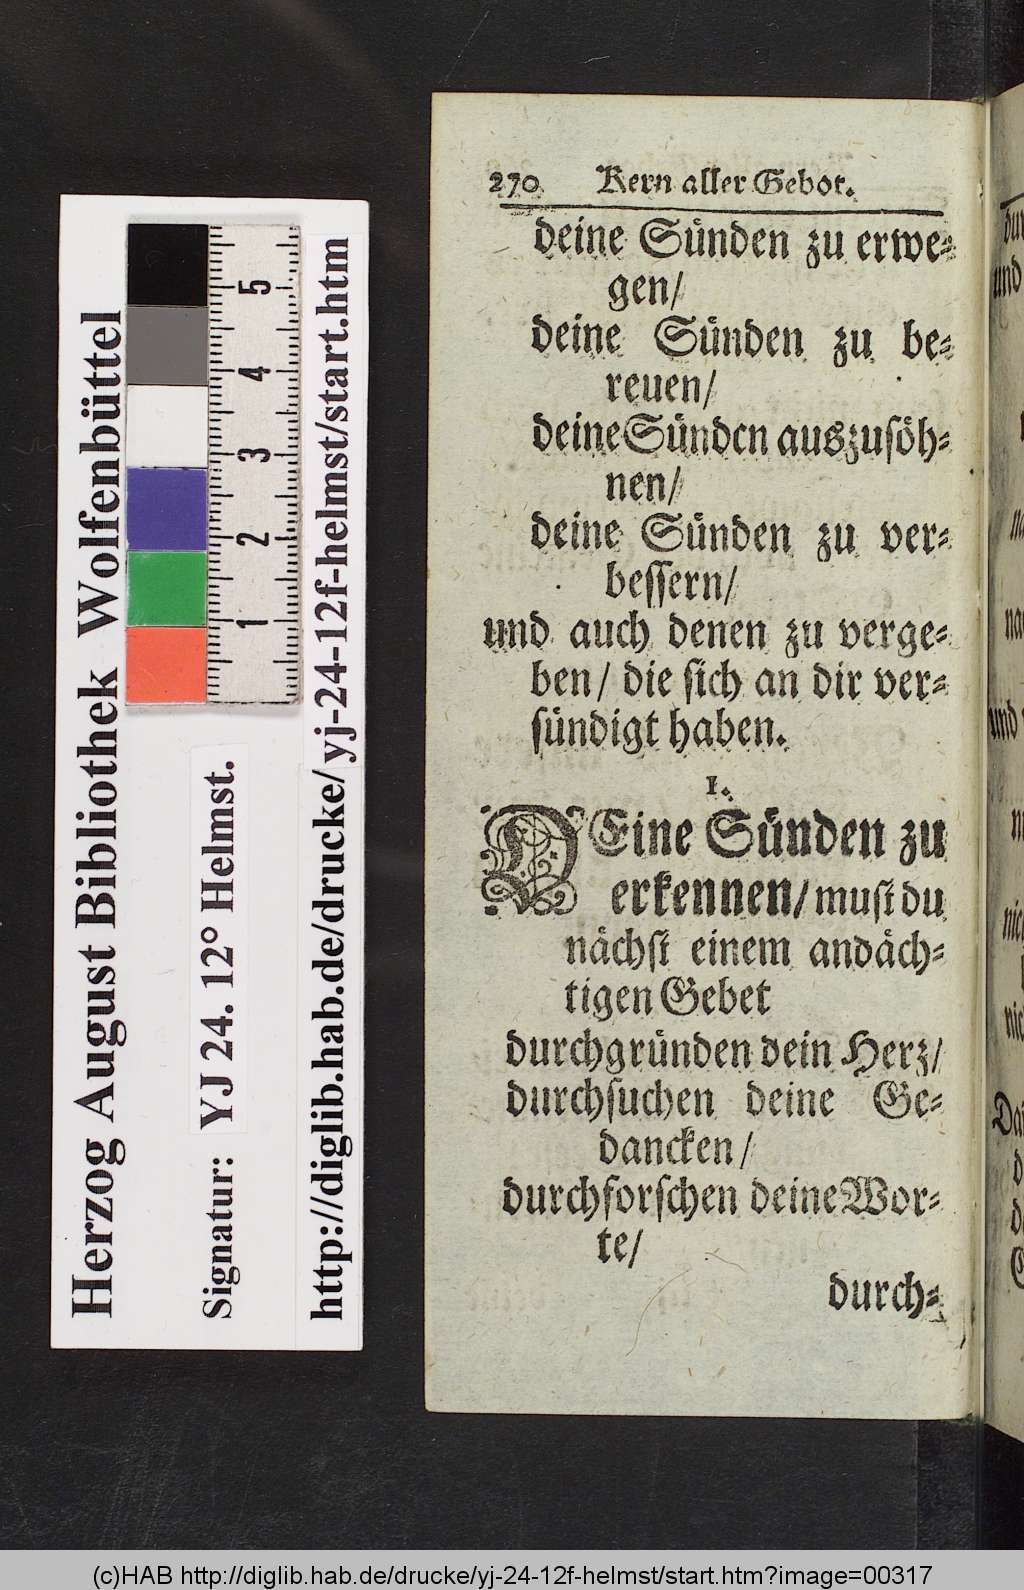 270 Kern aller Gebot.
deine Sünden zu erwe-
gen/
deine Sünden zu be-
reuen/
deine Sünden auszusöh-
nen/
deine Sünden zu ver-
bessern/
und auch denen zu verge-
ben/ die sich an dir ver-
sündigt haben.
1.
DEine Sünden zu
erkennen/ must du
nächst einem andäch-
tigen Gebet
durchgründen dein Herz/
durchsuchen deine Ge-
dancken/
durchforschen deine Wor-
te/
durch-
Herzog August Bibliothek Wolfenbüttel
Signatur: YJ 24. 12° Helmst.
http://diglib.hab.de/drucke/yj-24-12f-helmst/start.htm
1 2 3 4 5
(c)HAB http://diglib.hab.de/drucke/yj-24-12f-helmst/start.htm?image=00317